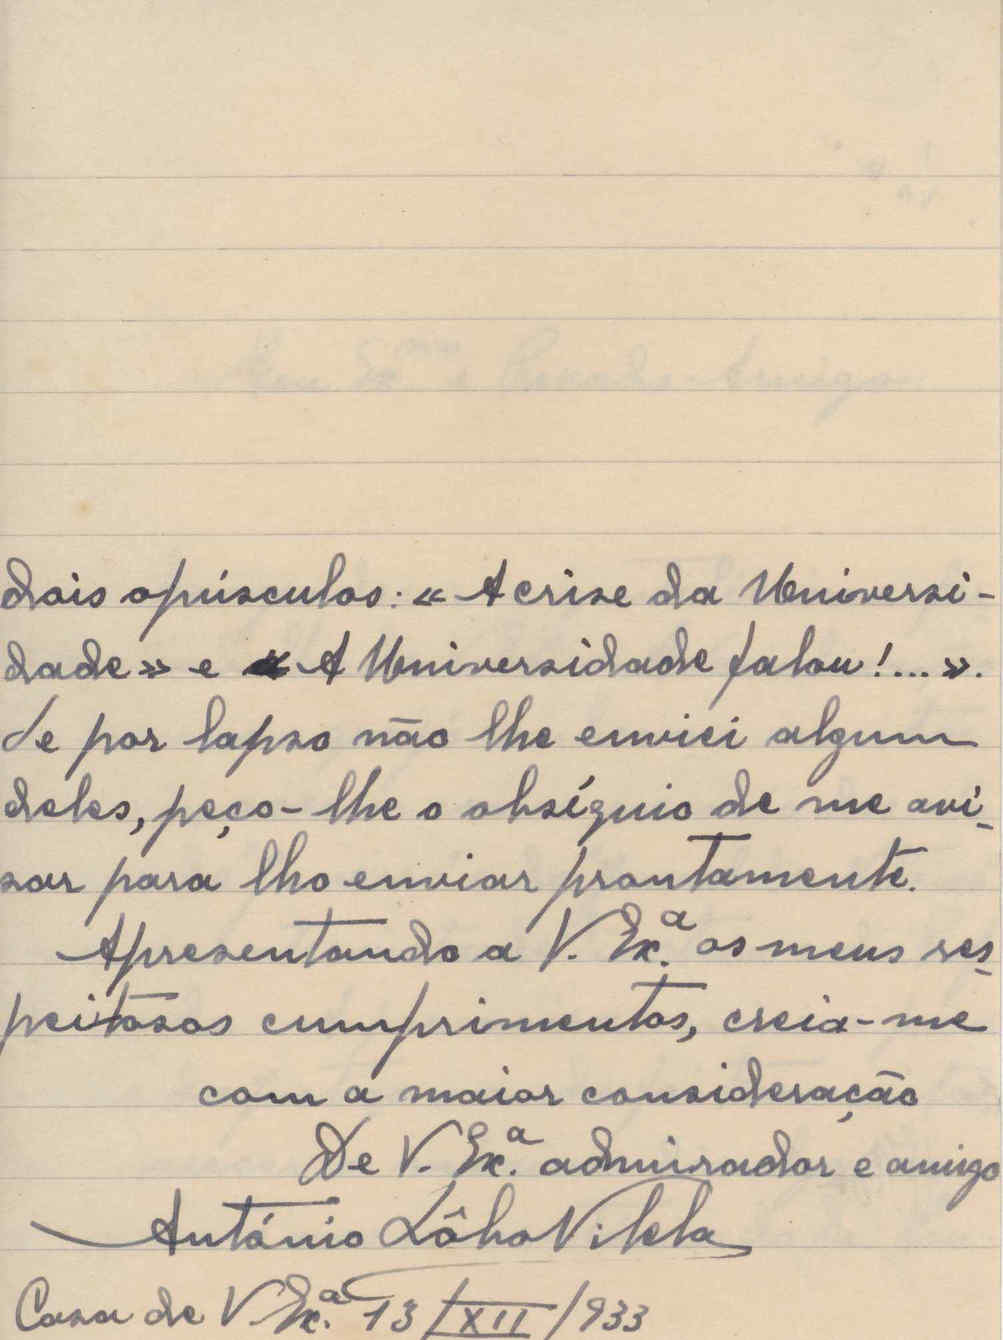 dois opúsculos: « A crise da Universi-
dade » e « A Universidade falou!... ».
Se por lapso não lhe enviei algum
deles, peço-lhe o obséquio de me avi-
sar para lho enviar prontamente.
Apresentando a V. Ex.ª os meus res-
peitosos cumprimentos, creia-me
com a maior consideração
De V. Ex.ª admirador e amigo
António Lôbo Vilela
Casa de V. Ex.ª 13/XII/933